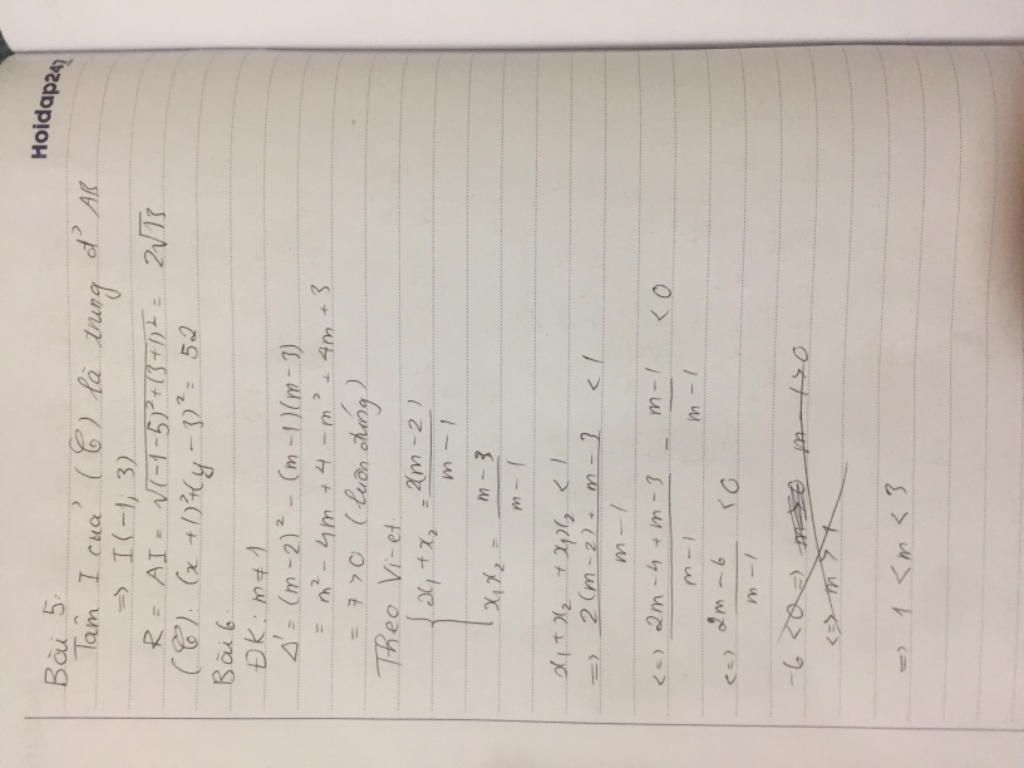 Hoidap247
Bài 5:
Tâm I của (C) là trung đ' AB
=> I(-1; 3)
R = AI = √(-1-5)²+(3+1)² = 2√13
(C): (x+1)²+(y-3)² = 52
Bài 6:
ĐK: m ≠ 1
Δ' = (m-2)² - (m-1)(m-3)
= m² - 4m + 4 - m² + 4m + 3
= 7 > 0 (luôn đúng)
Theo Vi-et:
{ x₁+x₂ = 2(m-2) / m-1
x₁x₂ = m-3 / m-1
x₁+x₂ + x₁x₂ < 1
=> 2(m-2) + m-3 / m-1 < 1
<=> 2m-4+m-3 / m-1 - m-1 / m-1 < 0
<=> 2m-6 / m-1 < 0
-6 < 0 => m-1 > 0
<=> m > 1
=> 1 < m < 3